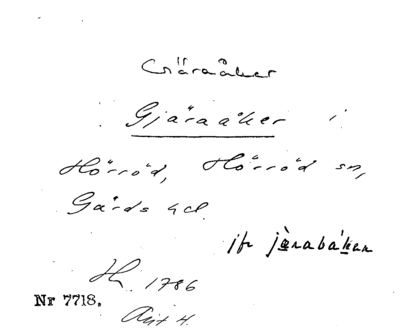 Gäraåker
Gjäraåker i
Hörröd, Hörröd sn,
Gärds hd.
jfr järabáken
H. 1786
Nr 7718.
Akt 4.